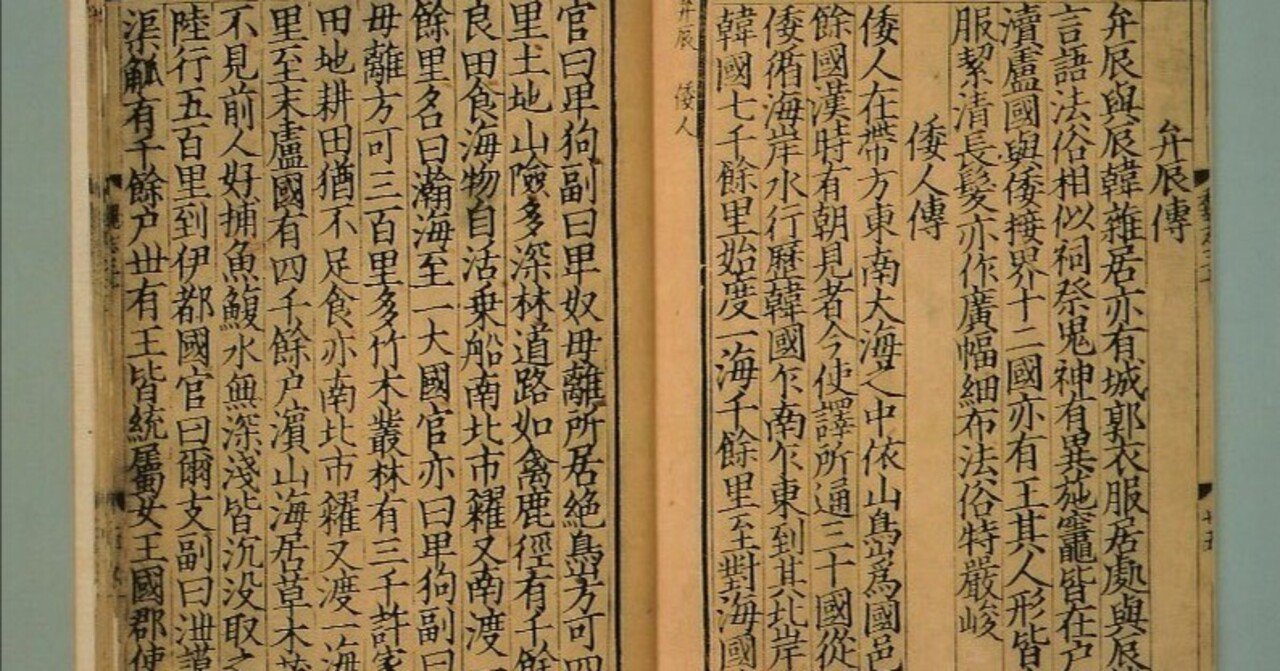 弁辰傳
弁辰與辰韓雜居亦有城郭衣服居處與辰
言語法俗相似祠祭鬼神有異施竈皆在户
瀆盧國與倭接界十二國亦有王其人形皆
服絜清長髮亦作廣幅細布法俗特嚴峻
倭人傳
倭人在帶方東南大海之中依山㠀爲國邑
餘國漢時有朝見者今使譯所通三十國從
倭循海岸水行歷韓國乍南乍東到其北岸
韓國七千餘里始度一海千餘里至對海國
弁辰 倭人
官曰卑狗副曰卑奴母離所居絶㠀方可四
里土地山險多深林道路如禽鹿徑有千餘
良田食海物自活乗船南北市糴又南渡一
餘里名曰瀚海至一大國官亦曰卑狗副曰
母離方可三百里多竹木叢林有三千許家
田地耕田猶不足食亦南北市糴又渡一海
里至末盧國有四千餘户濵山海居草木
不見前人好捕魚鰒水無深淺皆沉没取之
陸行五百里到伊都國官曰爾支副曰泄謨
渠觚有千餘户丗有王皆統屬女王國郡使